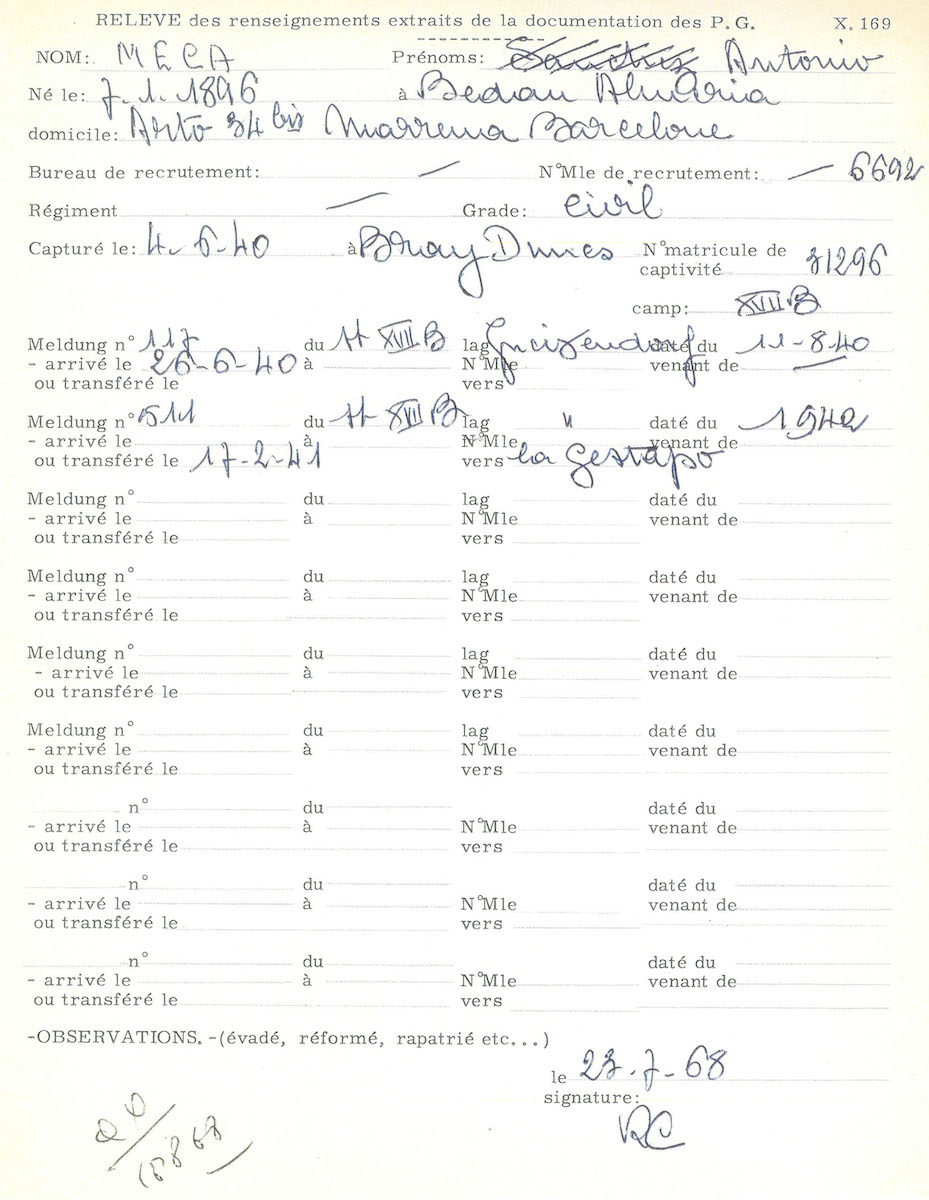 RELEVE des renseignements extraits de la documentation des P. G. X. 169
NOM: MECA Prénoms: Antonio
Né le: 7. 1. 1896 à Bedau Almeria
domicile: Arto 34 bis Marrema Barcelone
Bureau de recrutement: — N°Mle de recrutement: — 6692
Régiment — Grade: civil
Capturé le: 4-6-40 à Bray Dunes N°matricule de
captivité 31296
camp: XVII B
Meldung n° 117 du St XVII B lag Gneixendorf daté du 11-8-40
- arrivé le 26-6-40 à N°Mle venant de —
ou transféré le vers
Meldung n° 511 du St XVII B lag " daté du 1942
- arrivé le à N°Mle venant de
ou transféré le 17-2-41 vers la Gestapo
Meldung n° du lag daté du
- arrivé le à N°Mle venant de
ou transféré le vers
Meldung n° du lag daté du
- arrivé le à N°Mle venant de
ou transféré le vers
Meldung n° du lag daté du
- arrivé le à N°Mle venant de
ou transféré le vers
Meldung n° du lag daté du
- arrivé le à N°Mle venant de
ou transféré le vers
n° du daté du
- arrivé le à N°Mle venant de
ou transféré le vers
n° du daté du
- arrivé le à N°Mle venant de
ou transféré le vers
n° du daté du
- arrivé le à N°Mle venant de
ou transféré le vers
-OBSERVATIONS. -(évadé, réformé, rapatrié etc...)
le 23-7-68
signature:
RC